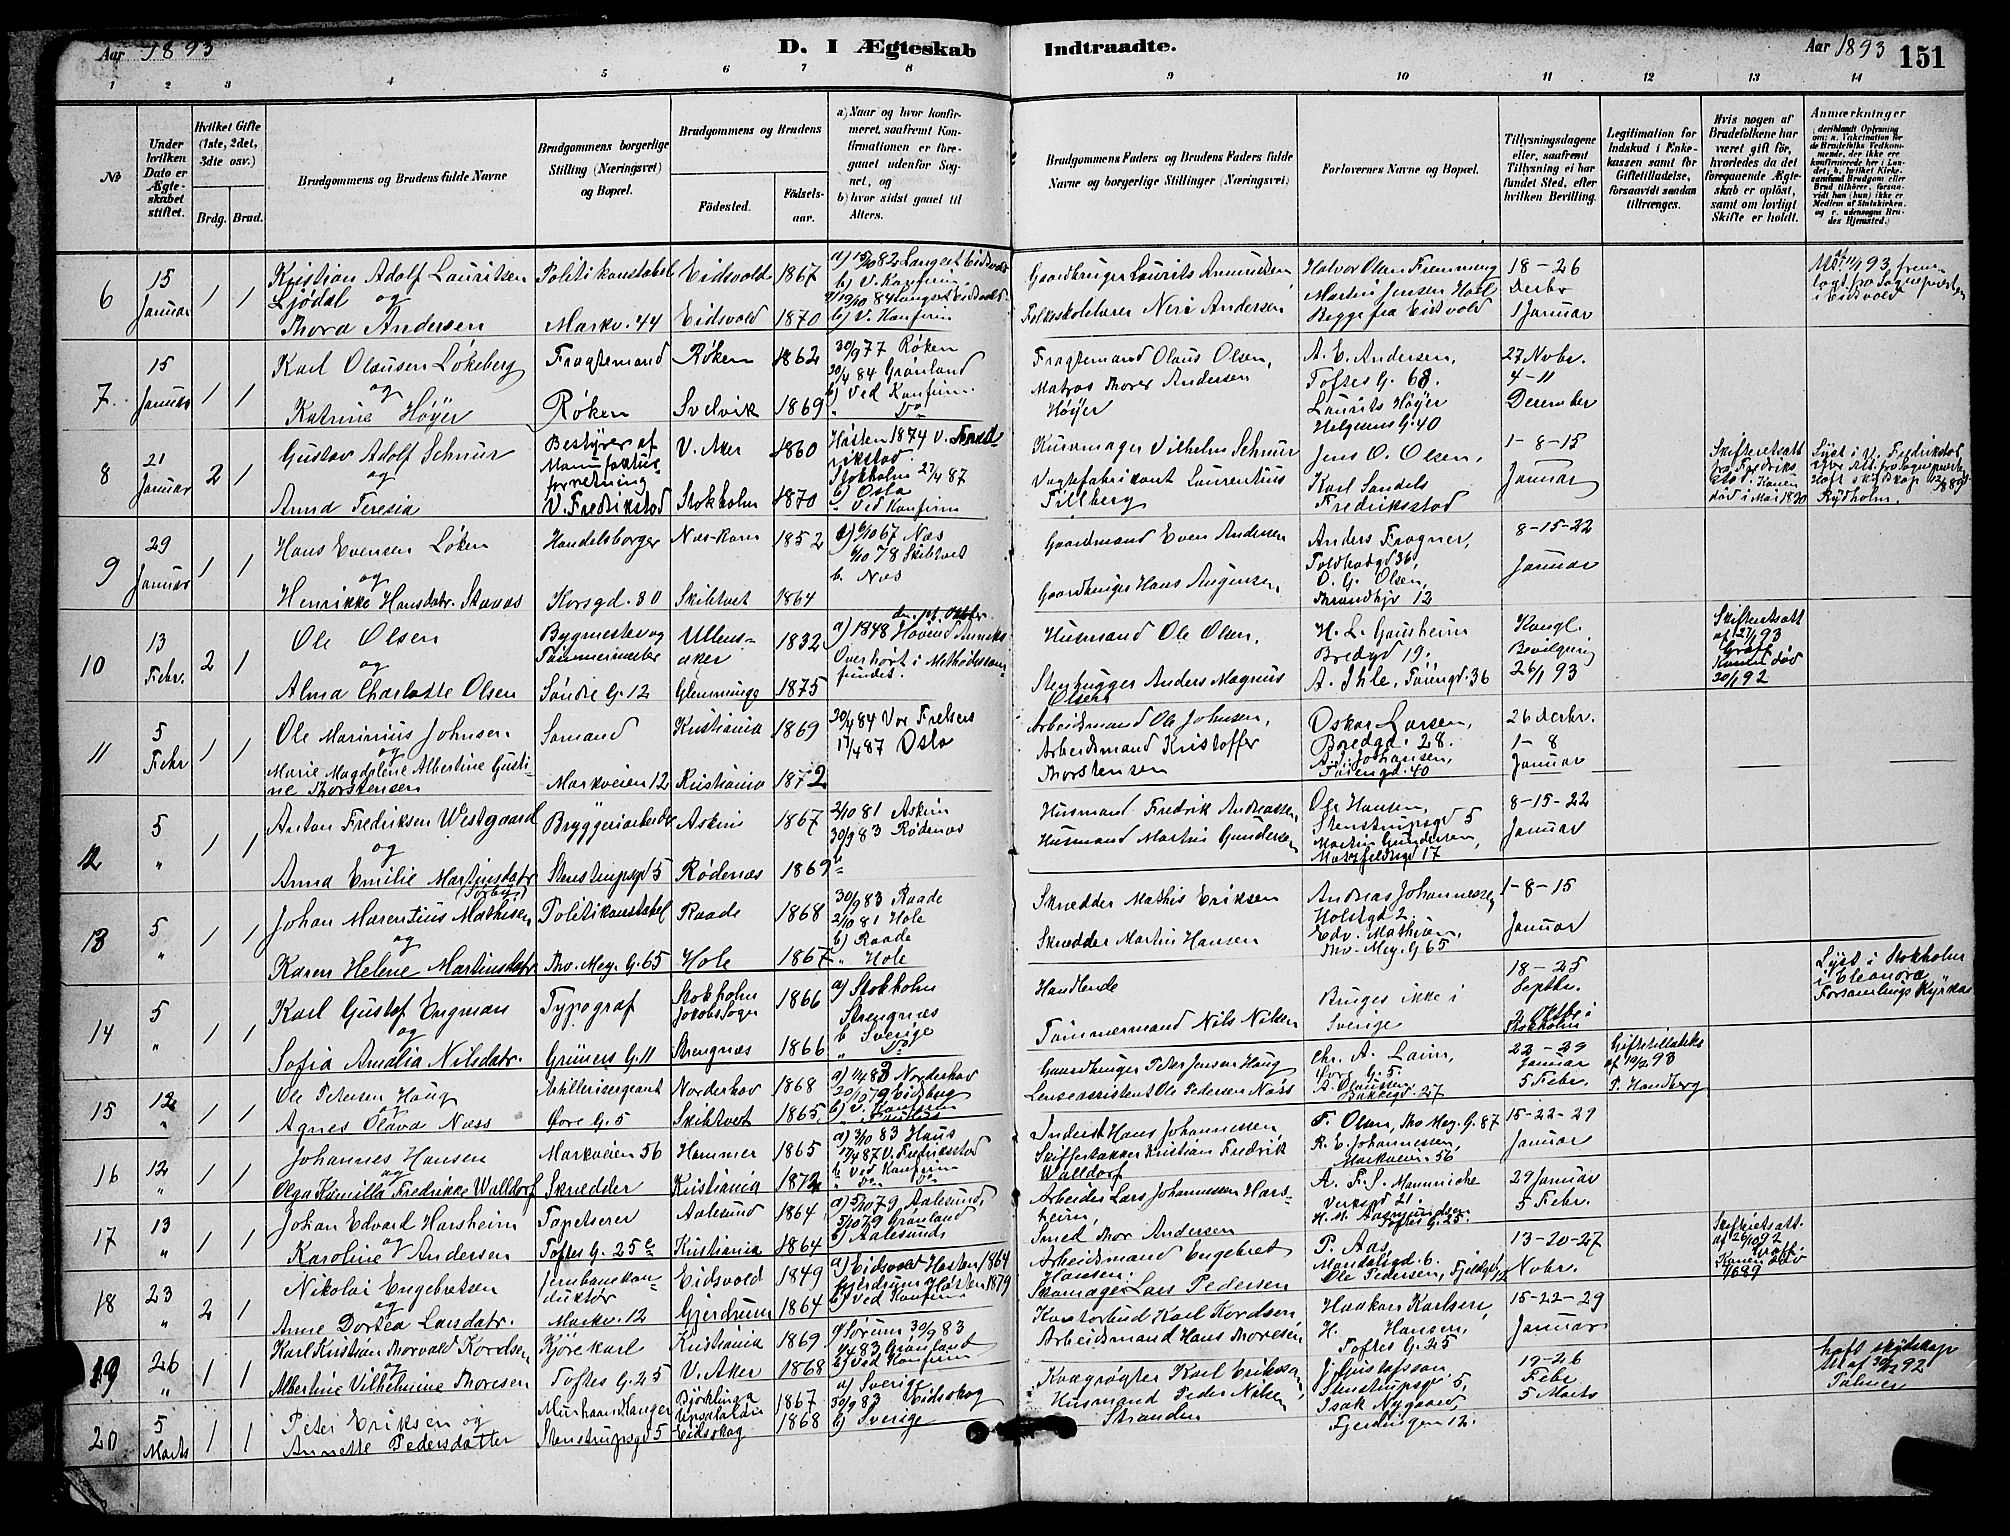 Aar 1893
D. I Ægteskab Indtraadte.
Aar 1893
151
1 2 3 4 5 6 7 8 9 10 11 12 13 14
№
Under hvilken Dato er Ægteskabet stiftet.
Hvilket Gifte (1ste, 2det, 3dte osv.)
Brdg. Brud.
Brudgommens og Brudens fulde Navne
Brudgommens borgerlige Stilling (Næringsvei) og Bopæl.
Brudgommens og Brudens
Fødested.
Fødselsaar.
a) Naar og hvor konfirmeret, saafremt Konfirmationen er foregaaet udenfor Sognet, og
b) hvor sidst gaaet til Alters.
Brudgommens Faders og Brudens Faders fulde Navne og borgerlige Stillinger (Næringsvei)
Forlovernes Navne og Bopæl.
Tillysningsdagene eller, saafremt Tillysning ei har fundet Sted, efter hvilken Bevilling.
Legitimation for Indskud i Enkekassen samt for Giftetilladelse, forsaavidt saadan tiltrænges.
Hvis nogen af Brudefolkene har været gift før, hvorledes da det foregaaende Ægteskab er opløst, samt om lovligt Skifte er holdt.
Anmærkninger
6
15 Januar
1 1
Kristian Adolf Lauritsen
Ljødal og
Thora Andersen
Politikonstabel
Markv. 44
Eidsvold 1867
Eidsvold 1870
b) V. Konfirm.
Gaardbruger Laurits Amundsen
Folkeskolelærer Neri Andersen
Halvor Olsen Fremming
Martin Jensen Hoel
Begge fra Eidsvold
18-26
Decbr
1 Januar
i Eidsvold
7
15 Januar
1 1
Karl Olausen Løkeberg
og
Katrine Høyer
Fragtemand
Røken
Røken 1862
Svelvik 1869
30/9 77 Røken
20/4 84 Grønland
b) Ved Konfirm.
" Do
Fragtemand Olaus Olsen,
Matros Thorer Andersen
Høyer
A. E. Andersen,
Toftes G. 68.
Laurits Høyer
Helgesens G. 40
27 Novbr.
4-11
December
8
21 Januar
2 1
Gustav Adolf Schnur
og
Anna Teresia
Bestyrer af
Manufaktur
forretning
V. Fredrikstad
V. Aker 1860
Stokholm 1870
Høsten 1874 V. Fred-
rikstad
Stokholm 27/4 87
b) Oslo
" Ved Konfirm
Kurvmager Vilhelm Schnur
Vognfabrikant Laurentius
Tillberg
Jens O. Olsen,
Karl Sandels
Fredriksstad
1-8-15
Januar
Skifteretsatt
fra Fredriks
stad. Konen
død i Mai 1890
Lyst i V. Fredrikstad
Rydholm.
9
29 Januar
1 1
Hans Evensen Løken
og
Henrikke Hansdatr. Stavas
Handelsborger
Korsgd. 30
Næs-Rom 1852
Skibtvet 1864
a) 6/10 67 Næs
6/10 78 Skibtvet
b. Næs
Gaardmand Even Andersen
Gaardbruger Hans Augensen,
Anders Fragner,
Toldbodgd 36,
O. G. Olsen,
Throndhjv 12
8-15-22
Januar
10
13 Febr.
2 1
Ole Olsen
og
Alma Charlotte Olsen
Bygmester og
Tømmermester
Søndre G. 12
Ullens-
aker 1832
Glemminge 1875
a) 1848 Hovind Anneks.
Overhørt i Methodistsam-
fundet.
Husmand Ole Olsen,
Stenhugger Anders Magnus
Olsen
H. L. Gausheim
Bredgd 19.
A. Ihle, Tøiengd. 36
Kongl.
Bevilgning
26/1 93
Skifteretsatt
af 27/1 93
Graff
Konen død
20/1 92
11
5 Febr
1 1
Ole Marinius Johnsen
og
Marie Magdalene Albertine Gusti-
ne Thorstensen
Sømand
Markveien 12
Kristiania 1869
Kristiania 1872
20/4 84 Vor Frelsers
17/4 87 Oslo
Arbeidsmand Ole Johnsen,
Arbeidsmand Kristoffer
Thorstensen
Oskar Larsen,
Bredgd. 28.
A. J. Johansen,
Tøiengd. 40
26 Decbr.
1-8
Januar
12
5 "
1 1
Anton Fredriksen Westgaard
og
Anna Emilie Martinsdatr
Bryggeriarbeider
Stenstrupsgd 5
Askim 1867
Rødenæs 1869
2/10 81 Askim
30/9 83 Rødenæs
b
Husmand Fredrik Andreassen,
Husmand Martin Gundersen
Ole Hansen,
Stenstrupsgd 5
Martin Gundersen,
Motzfeldtsgd 17
8-15-22
Januar
13
5 "
1 1
Johan Marentius Mathisen
og
Karen Helene Martinsdatr.
Politikonstabel
Thv. Mey. G. 65
Raade 1868
Hole 1867
30/9 83 Raade
2/10 81 Hole
b) Raade
" Hole
Skrædder Mathis Eriksen
Skrædder Martin Hansen
Andreas Johannessen
Holstgd 2.
Edv. Mathisen,
Thv. Mey. G 65
1-8-15
Januar
14
5 "
1 1
Karl Gustaf Engman
og
Sofia Amalia Nilsdatr.
Typograf
Grüners G. 11
Stokholm
Jakobs Sogn 1866
Strengnæs 1866
a) Stokholm
Strengnæs
b Sverige
" Do
Handlende
Tømmermand Nils Nilsen
Bruges ikke i
Sverige
18-25
Septbr.
2 Oktbr i
Stokholm
Lyst i Stokholm
i Eleonora
Forsamlings Kyrkan
15
12 "
1 1
Ole Petersen Haug
og
Agnes Olava Næss
Artillerisergeant
Øvre G. 5
Norderhov 1868
Skibtvet 1865
Gaardbruger Peter Jensen Haug
Lenseassistent Ole Pedersen Næss
Chr. A. Laim,
Øvre G. 5.
A. Olaussen
Bakkegd. 27
22-29
Januar
5 Febr.
Giftetilladelse
af 10/2 93
T. Handberg
16
12 "
1 1
Johannes Hansen
og
Olga Kamilla Fredrikke Walldorf
Markveien 56
Skrædder
Hammer 1865
Kristiania 1872
a) 3/10 83 Haus
17/4 87 V. Fredriksstad
b) Ved Konfirm
" Do
Inderst Hans Johannessen,
Skiffertækker Kristian Fredrik
Walldorf
T. Olsen, Tho Mey. G. 87
R. E. Johannessen,
Markveien 56
15-22-29
Januar
17
13 "
1 1
Johan Edvard Harsheim
og
Karoline Andersen
Tapetserer
Toftes G. 25 c
Aalesund 1864
Kristiania 1864
a) 5/10 79 Aalesund,
5/10 79 Grønland
b) Aalesunds
Arbeider Lars Johannessen Hars-
heim,
Smed Thor Andersen
A. F. S. Mamniche
Verksgd 21.
H. M. Aasmundsen
Toftes G. 25.
29 Januar
5 Febr.
18
23 "
2 1
Nikolai Engebretsen
og
Anne Dortea Larsdatr.
Jernbanekon-
duktør
Markv. 12
Eidsvold 1849
Gjerdrum 1864
a) Eidsvold Høsten 1864
Gjerdrum Høsten 1879
b) Ved Konfirm
Arbeidsmand Engebret
Hansen.
Skomager Lars Pedersen
P. Aas,
Mandalsgd. 6.
Ole Pedersen, Fjeldgd 12
13-20-27
Novbr.
Skifteretsatt.
af 26/10 92
Graff.
Konen død
19
26 "
1 1
Karl Kristian Thorvald Kordsen
og
Albertine Vilhelmine Thoresen
Kjørekarl
Toftes G. 25
Kristiania 1869
V. Aker 1868
a) Sørum 30/9 83
1/4 83 Grønland
b) Ved Konfirm
Kontorbud Karl Kordsen,
Arbeidsmand Hans Thoresen
Haakon Karlsen,
H. Hansen,
Toftes G. 25
15-22-29
Januar
20
5 Marts
1 1
Peter Eriksen og
Annette Pedersdatter
Murhaandlanger
Stenstrupsgd 5
Björklinge
Upsalalän 1867
Eidskog 1868
a) Sverige
30/9 83 Eidskog
b) Sverige
Kvægrøgter Karl Eriksson,
Husmand Peder Nilsen
Stranden
J. Gustafsson
Stenstrupsgd 5,
Isak Nygaard
Fjerdingen 12.
19-26
Febr
5 Marts